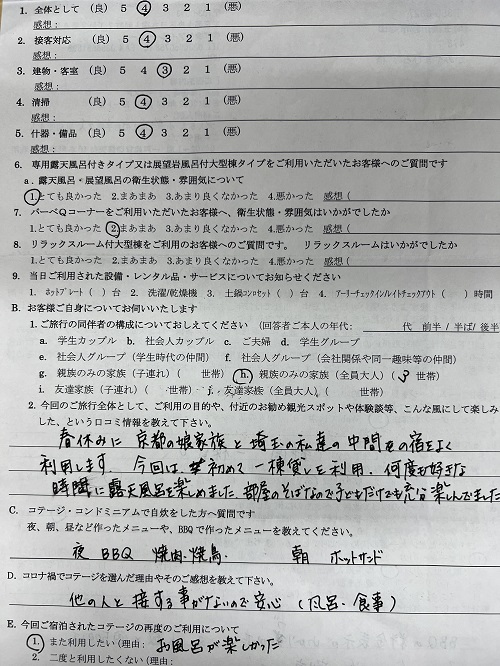 1. 全体として (良) 5 4 3 2 1 (悪)
感想:
2. 接客対応 (良) 5 4 3 2 1 (悪)
感想:
3. 建物・客室 (良) 5 4 3 2 1 (悪)
感想:
4. 清掃 (良) 5 4 3 2 1 (悪)
感想:
5. 什器・備品 (良) 5 4 3 2 1 (悪)
感想:
6. 専用露天風呂付きタイプ又は展望岩風呂付大型棟タイプをご利用いただいたお客様へのご質問です
a.露天風呂・展望風呂の衛生状態・雰囲気について
1.とても良かった 2.まあまあ 3.あまり良くなかった 4.悪かった 感想(
7. バーベQコーナーをご利用いただいたお客様へ、衛生状態・雰囲気はいかがでしたか
1.とても良かった 2.まあまあ 3.あまり良くなかった 4.悪かった 感想(
8. リラックスルーム付大型棟をご利用のお客様へのご質問です。 リラックスルームはいかがでしたか
1.とても良かった 2.まあまあ 3.あまり良くなかった 4.悪かった 感想(
9. 当日ご利用された設備・レンタル品・サービスについてお知らせください
1. ホットプレート( )台 2. 洗濯/乾燥機 3. 土鍋コンロセット( )台 4. アーリーチェックイン/レイトチェックアウト( )時間
B. お客様ご自身についてお伺いいたします
1.ご旅行の同伴者の構成についておしえてください (回答者ご本人の年代: 代 前半/半ば/後半
a. 学生カップル b. 社会人カップル c. ご夫婦 d. 学生グループ
e. 社会人グループ(学生時代の仲間) f. 社会人グループ(会社関係や同一趣味等の仲間)
g. 親族のみの家族(子連れ)( 世帯) h. 親族のみの家族(全員大人)( 世帯)
i. 友達家族(子連れ)( 世帯) j. 友達家族(全員大人)( 世帯)
2. 今回のご旅行全体として、ご利用の目的や、付近のお勧め観光スポットや体験談等、こんな風にして楽しみ
した、という口コミ情報を教えて下さい。
春休みに 京都の娘家族と埼玉の私達の中間の宿をよく
利用します. 今回は 初めて一棟貸しを利用. 何度も好きな
時間に露天風呂を楽しめました. 部屋のそばなので子どもだけでも充分楽しんでました
C. コテージ・コンドミニアムで自炊をした方へ質問です
夜、朝、昼など作ったメニューや、BBQで作ったメニューを教えてください。
夜 BBQ 焼肉・焼鳥. 朝 ホットサンド
D. コロナ禍でコテージを選んだ理由やそのご感想を教えて下さい。
他の人と接する事がないので安心 (風呂・食事)
E. 今回ご宿泊されたコテージの再度のご利用について
1. また利用したい(理由: お風呂が楽しかった
2. 二度と利用したくない(理由: